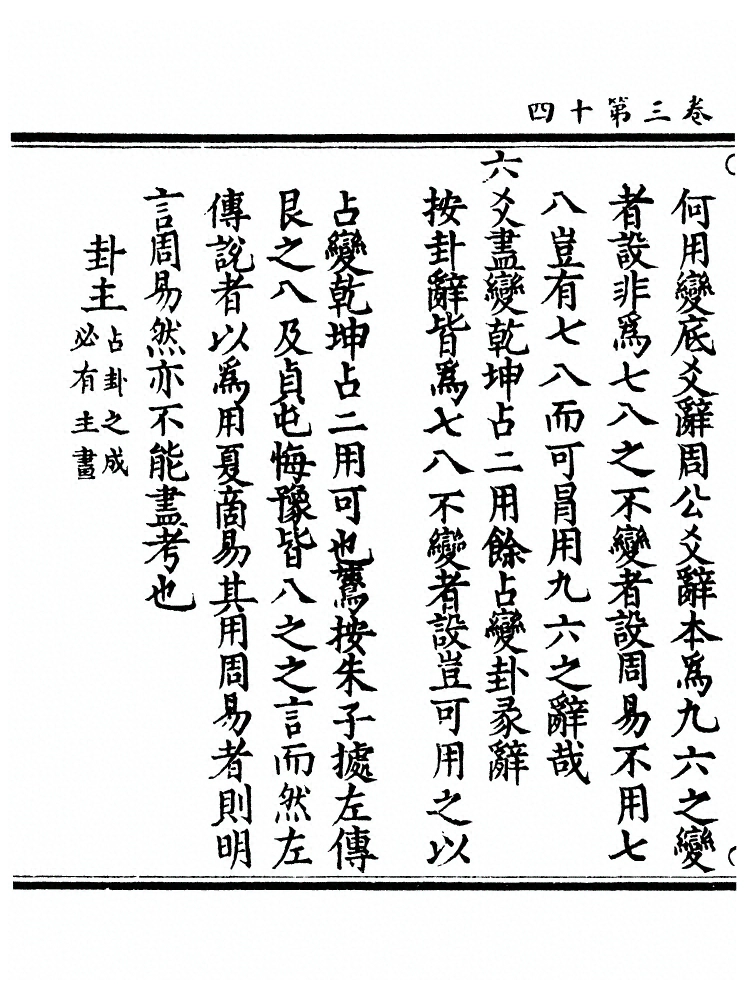 卷三第十四
何用變底爻辭周公爻辭本爲九六之變
者設非爲七八之不變者設周易不用七
八豈有七八而可冐用九六之辭哉
六爻盡變乾坤占二用餘占變卦彖辭
按卦辭皆爲七八不變者設豈可用之以
占變乾坤占二用可也驚按朱子據左傳
艮之八及貞屯悔豫皆八之之言而然左
傳說者以爲用夏商易其用周易者則明
言周易然亦不能盡考也
卦主
占卦之成
必有主畫